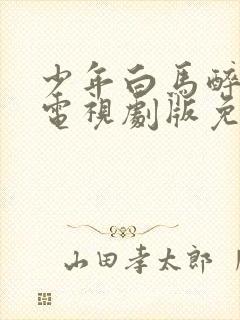 少年白馬醉
電視劇版免
山田孝太郎